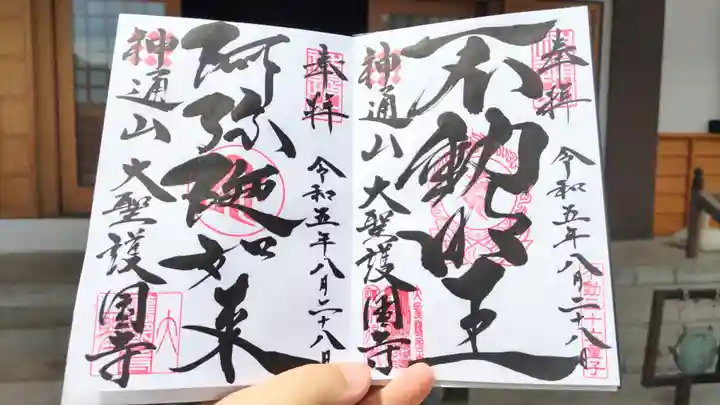 奉拝
令和五年八月二十八日
不動明王
神通山 大聖護国寺
奉拝
令和五年八月二十八日
阿弥陀如来
神通山 大聖護国寺